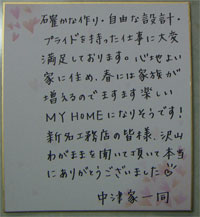 確かな作り・自由な設計・
プライドを持った仕事に大変
満足しております。心地よい
家に住め、春には家族が
増えるのでますます楽しい
MY HOMEになりそうです!
新名工務店の皆様、沢山
わがままを聞いて頂いて本当
にありがとうございました☺
中津家一同